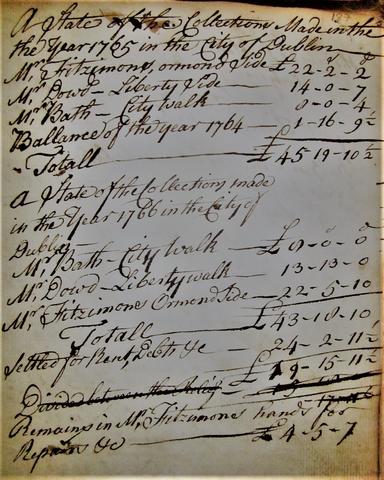 A State of the Collections Made in the
the Year 1765 in the City of Dublin
Mr. Fitzimons, ormond Side £22-2-2
Mr. Dowd - Liberty Side 14-0-7
Mr. Bath - City walk 8-0-4
Ballance of the year 1764 1-16-9½
Totall £45-19-10½
a State of the Collection made
in the Year 1766 in the City of
Dublin
Mr. Bath - City Walk £8-0-0
Mr. Dowd - Liberty walk 13-13-0
Mr. Fitzimons Ormond Side 22-5-10
Totall £43-18-10
Settled for Rent, Debts &c 24-2-11½
£19-15-11½
Divided between the
Remains in Mr. Fitzimons hands for
Repairs &c £4-5-7